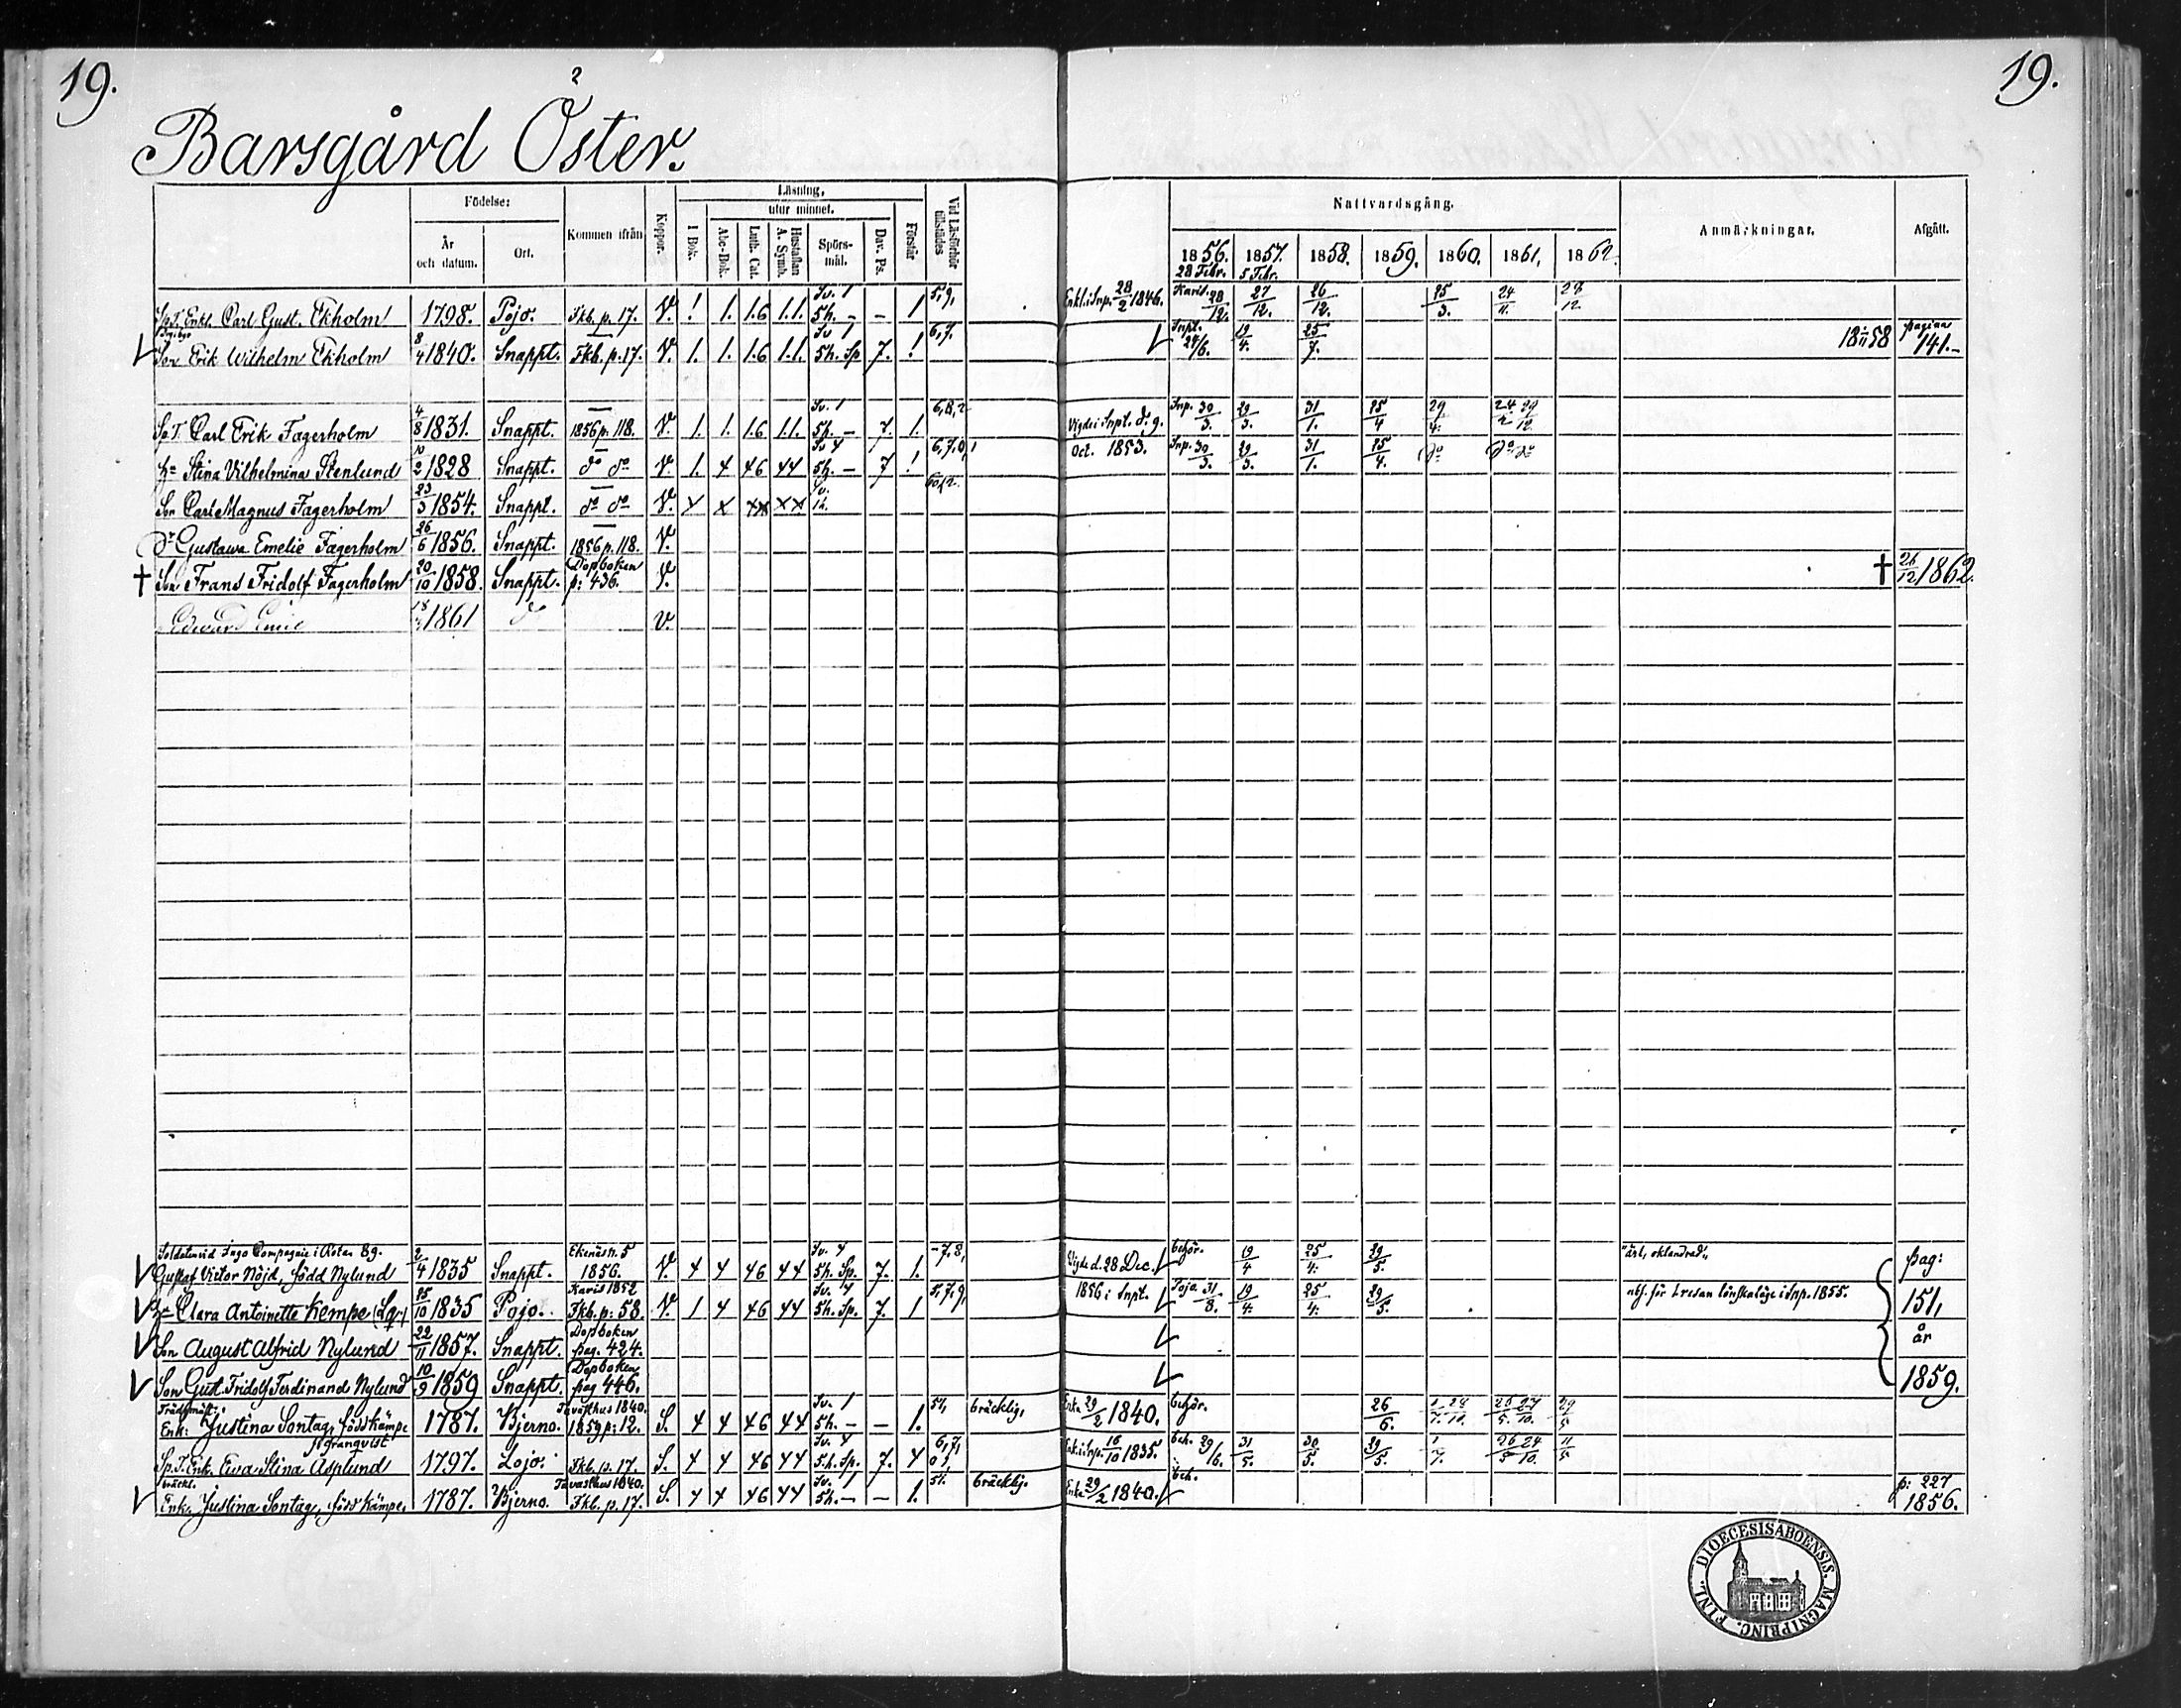 19.
19.
2
Barsgård Öster.
Födelse:
År och datum.
Ort.
Kommen ifrån
Koppor.
Läsning,
utur minnet.
I Bok.
Abc-Bok.
Luth. Cat.
Hustaflan A. Symb.
Spörs-mål.
Dav. Ps.
Förstår
Vid Läsförhör tillstädes
Nattvardsgång.
1856. 1857. 1858. 1859. 1860. 1861. 1862.
28 Febr. 5 Febr.
Anmärkningar.
Afgått.
Sp.T. Enkl. Carl Gust. Ekholm 1798. Pojo. Fkb. p. 17. V. ! 1. 1.6 1.1. Sv. 1 5h. - - 1 5,9, Enkl. i Snp. 28/2 1846. Karis. 28/12. 27/12. 26/12. 25/3. 24/11. 28/12.
Son Erik Wilhelm Ekholm 8/4 1840. Snappt. Fkb. p. 17. V. 1. 1. 1.6 1.1. Sv 1 5h. Sp 7. ! 6,7. Snpt. 24/6. 19/4. 25/7. 18 58 pagina 141.-
Sp.T. Carl Erik Fagerholm 4/8 1831. Snappt. 1856 p. 118. V. 1. 1. 1.6 1.1. Sv. 1 5h. - 7. 1. 6,8,2 Vigde i Snpt. d. 9. Snp. 30/3. 29/3. 31/1. 25/4 29/4. 24/2 29/12.
Stina Vilhelmina Stenlund 10/2 1828 Snappt. do do V. 1. 4 46 44 Sv 4 5h. - 7 ! 6,7,0,1 Oct. 1853. Snp. 30/3. 29/3. 31/1. 25/4. do do do
Son Carl Magnus Fagerholm 23/3 1854. Snappt. do do V. x x xx xx Sv.
Dr Gustava Emelie Fagerholm 26/6 1856. Snappt. 1856 p. 118. V.
† Son Frans Fridolf Fagerholm 20/10 1858. Snappt. Dopboken p: 436. V. † 26/12 1862.
Edward Emil 1861 do V.
Soldaten vid Ingo Compagnie i Rotan 89.
Gustaf Victor Nöjd, född Nylund 2/4 1835 Snappt. Ekenäs n. 5 1856. V. 4 4 46 44 Sv. 4 5h. Sp. 7. 1. -7,8, Vigde d. 28 Dec. behör. 19/4 25/4. 29/5. pag:
Clara Antoinette Kempe 25/10 1835 Pojo. Karis 1852 Fkb. p: 58. V. 1 4 46 44 Sv. 4 5h. Sp. 7. 1 5,7,9, 1856 i Snpt. Pojo. 31/8. 19/4. 25/4. 29/5. abs. för 1 resan lönskaläge i Snp. 1855. 151,
Son August Alfrid Nylund 22/11 1857. Snappt. Dopboken pag. 424. år
Son Gust. Fridolf Ferdinand Nylund 10/9 1859 Snappt. Dopboken pag 446. 1859.
Enk: Justina Sontag, född Kämpe 1787. Bjerno. Tavasthus 1840. 1859 p: 12. S. 4 4 46 44 Sv. 1 5h. - - 1. 51, bräcklig, Enka 29/2 1840. behör. 26/6. 26/5. 27/10. 29/5
Sp.T. Enk. Eva Stina Asplund f. Granqvist 1797. Lojo. Fkb. p. 17. S. 4 4 46 44 Sv. 4 5h. Sp. 7. 4 6,7, Enk. i Snp. 16/10 1835. beh. 29/6. 31/5. 30/5. 29/5. 1/7. 26/5 24/10. 11/5
bräckl. Enk. Justina Sontag, född Kämpe. 1787. Bjerno. Tavasthus 1840. Fkb. p. 17. S. 4 4 46 44 Sv. 1 5h. - - 1. 51. bräcklig. Enka 29/2 1840. beh. p: 227 1856.
DIOECESIS ABOENSIS. MAGNI PRINC. FINL.